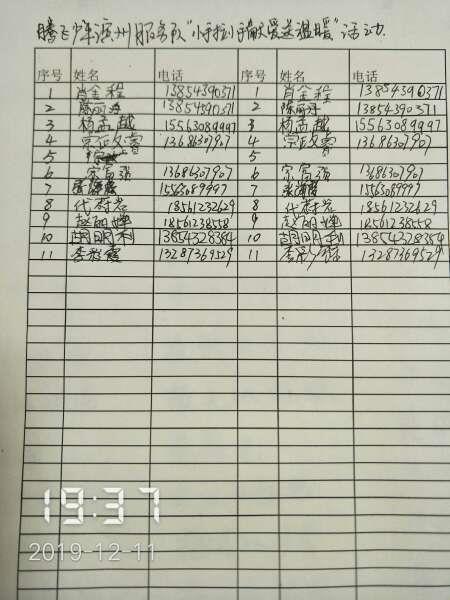 腾飞少年滨州服务队"小手拉小手献爱送温暖"活动.
序号 姓名 电话 序号 姓名 电话
1 肖金程 13854390371 1 肖金程 13854390371
2 陈丽丹 13854390371 2 陈丽丹 13854390371
3 杨孟越 15563089997 3 杨孟越 15563089997
4 宗政睿 13686307907 4 宗政睿 13686307907
5 5
6 宗宫强 13686307907 6 宗宫强 13686307907
7 15563089997 7 15563089997
8 代荷花 18561232629 8 代荷花 18561232629
9 赵丽娜 18561238558 9 赵丽娜 18561238558
10 胡明利 13854328384 10 胡明利 13854328384
11 李彩霞 13287369529 11 李彩霞 13287369529
19:37
2019-12-11